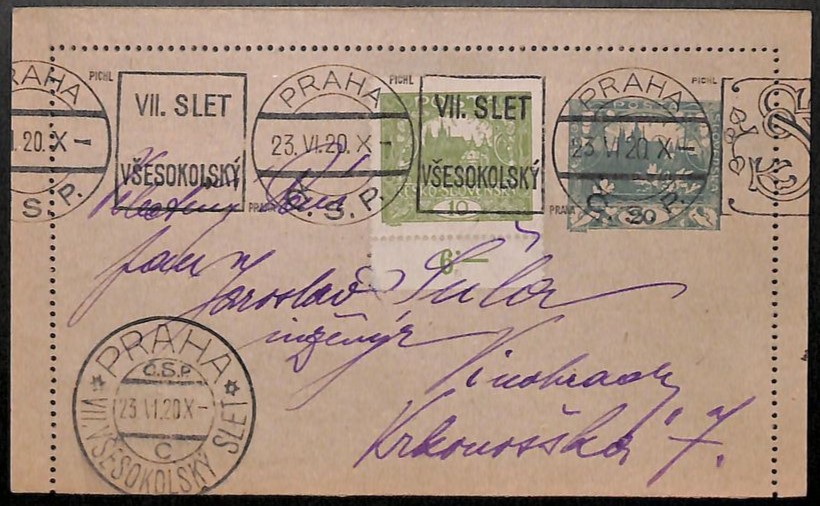 PRAHA
PICHL
PRAHA
PICHL
PRAHA
PICHL
VII. SLET
VŠESOKOLSKÝ
VII. SLET
VŠESOKOLSKÝ
.20.X-
23.VI.20.X-
23 VI 20 X-
PRAHA
PRAHA
Č.S.P.
Č.S.P.
Č.S.P.
POŠTA
ČESKO-SLOVENSKÁ
10
POŠTA
SLOVENSKÁ
20
6:—
pan
Jaroslav Šula
inženýr
Vinohrady
Krkonošská 7.
PRAHA
Č.S.P.
23.VI.20X-
C
VII. VŠESOKOLSKÝ SLET